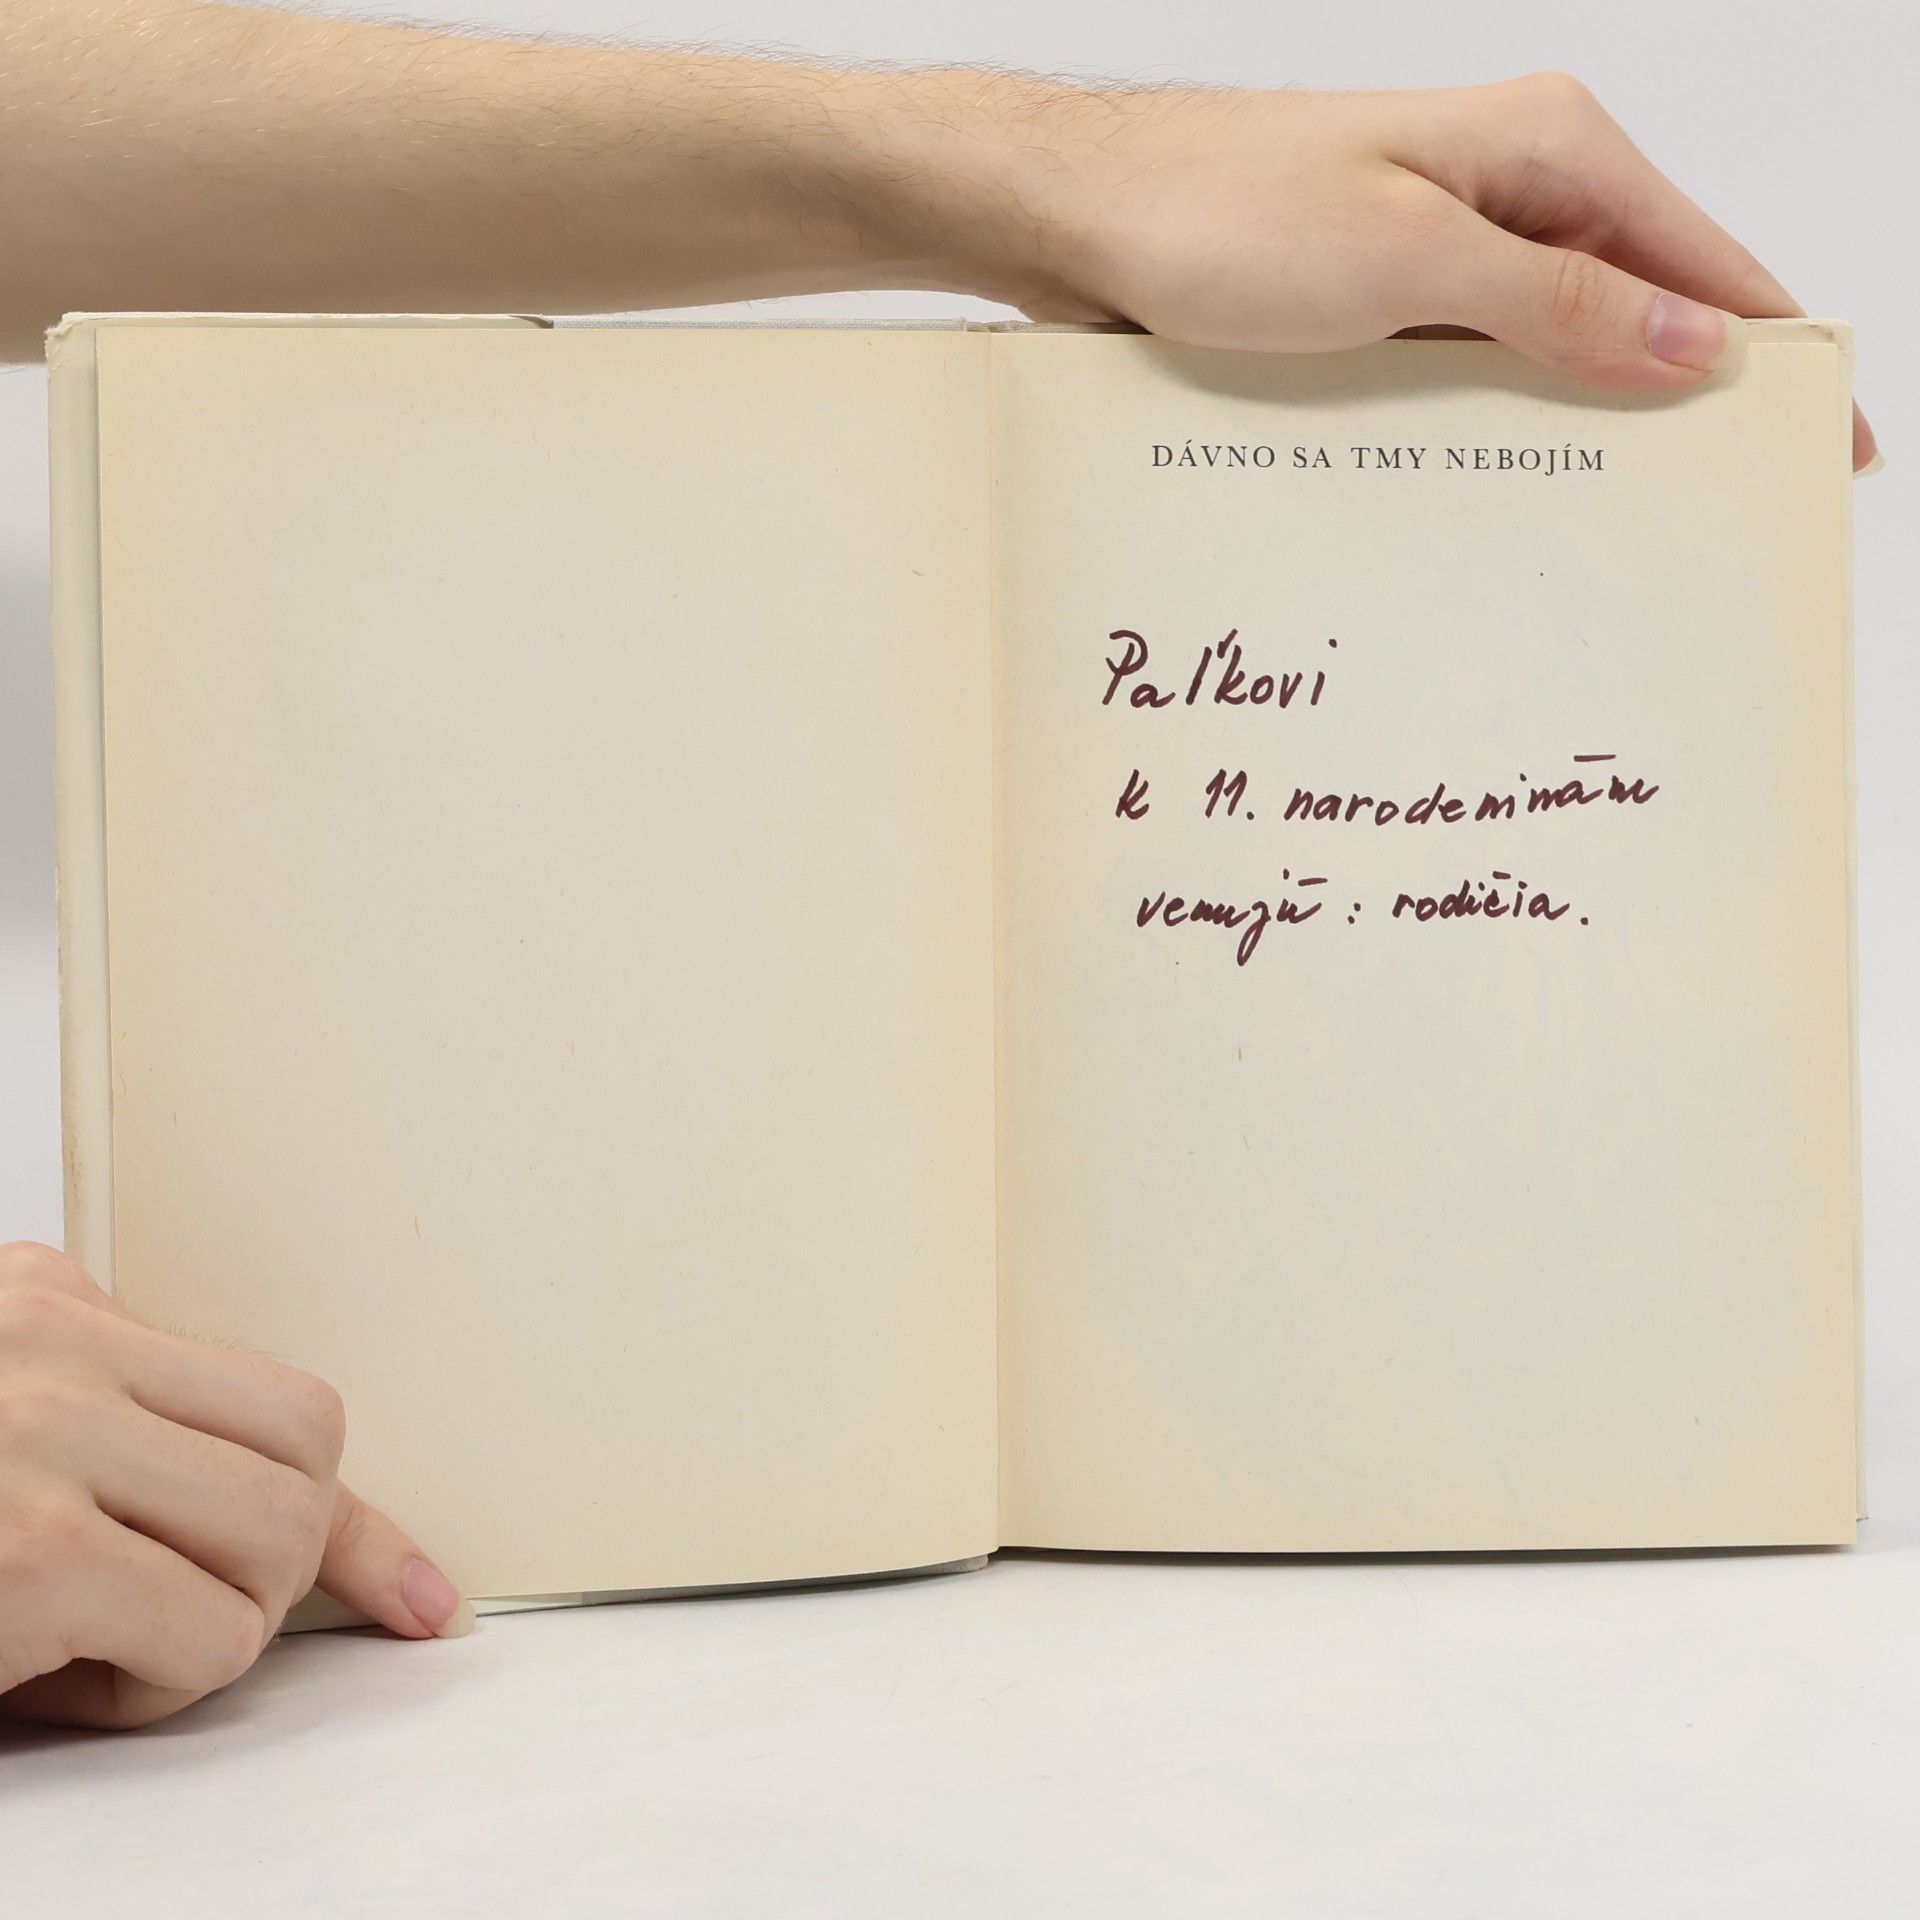 DÁVNO SA TMY NEBOJÍM
Paľkovi
k 11. narodeninám
venujú : rodičia.